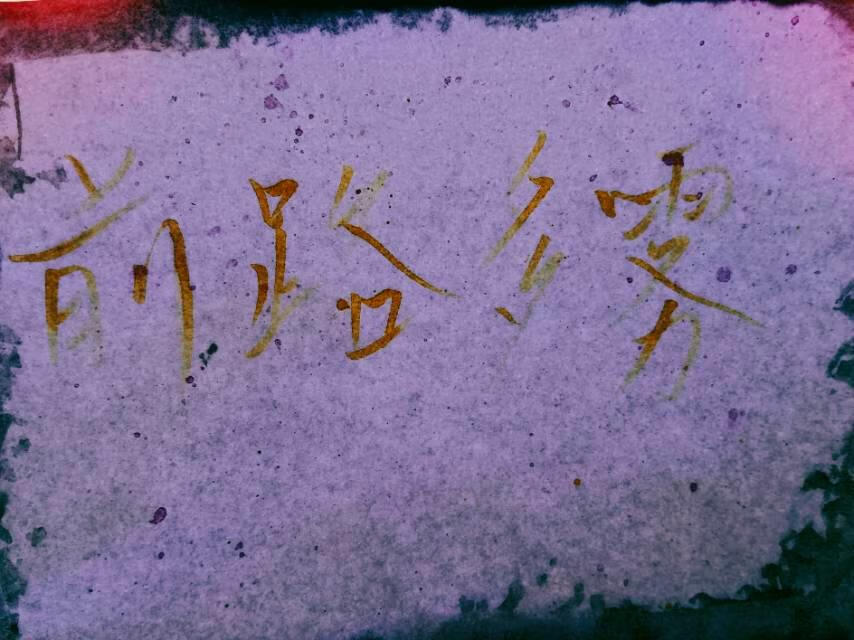 前路多雾